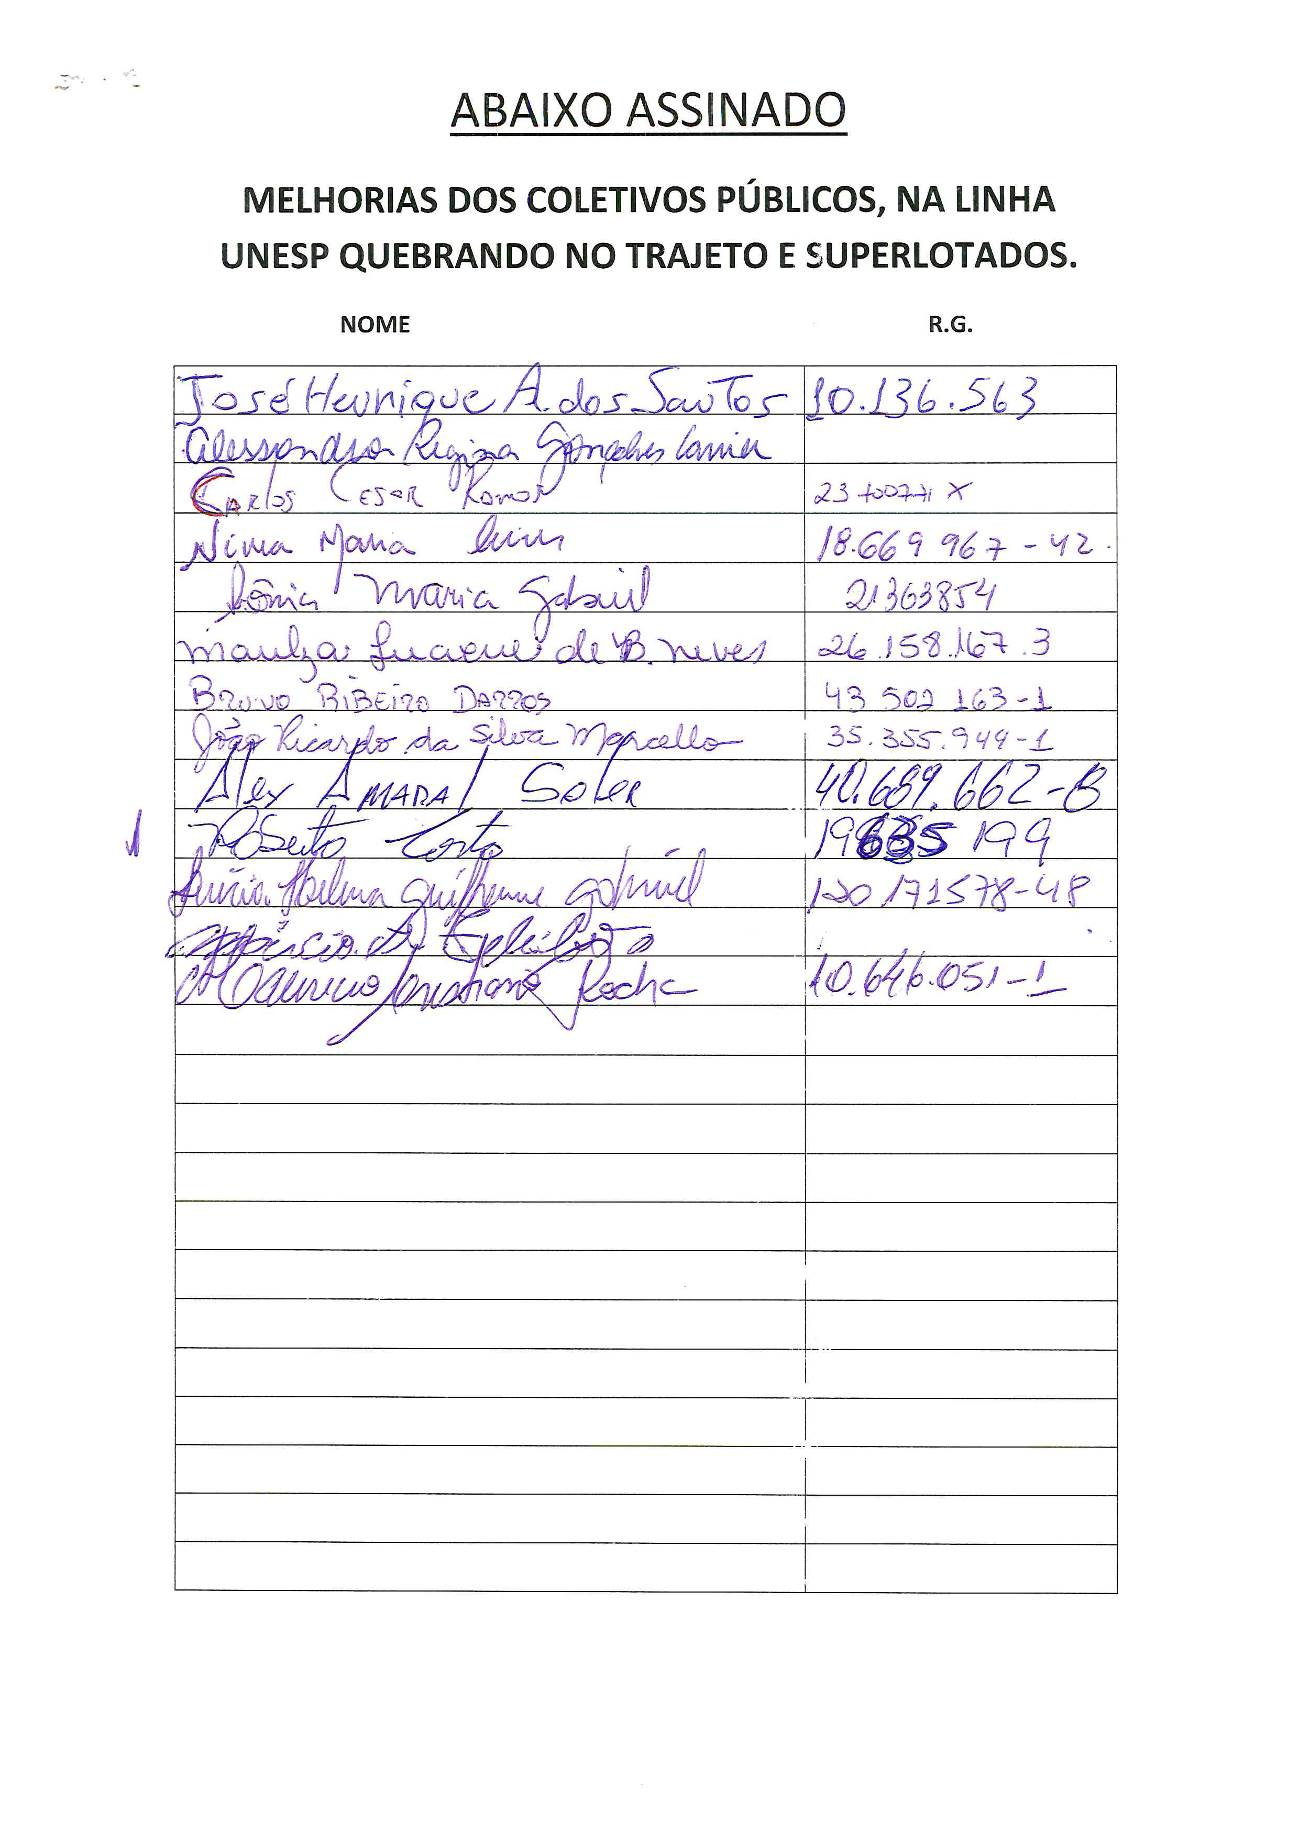 ABAIXO ASSINADO
MELHORIAS DOS COLETIVOS PÚBLICOS, NA LINHA
UNESP QUEBRANDO NO TRAJETO E SUPERLOTADOS.
NOME R.G.
José Henrique A. dos Santos 10.136.563
Alessandra Regina Gonçalves
Carlos Cesar Ramos
Maria 18.669 967-42
Sônia Maria Gabriel 21363854
de B. Neves 26.158.167.3
Bruno Ribeiro Barros 43 502 163-1
João Ricardo da Silva Marcello 35.355.949-1
Alex Amaral Soler 40.689.662-8
Roberto Costa 199
Helena Guilherme Gabriel 120 171578-48
Mauricio Cristiano Rocha 10.646.051-1